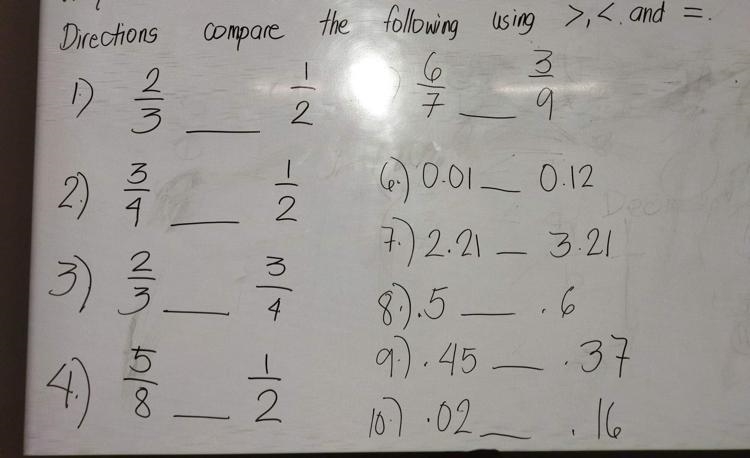 Directions compare the following using >, <. and =.
1.) 2/3 ___ 1/2
2.) 3/4 ___ 1/2
3) 2/3 ___ 3/4
4.) 5/8 ___ 1/2
) 6/7 ___ 3/9
6.) 0.01 __ 0.12
7.) 2.21 __ 3.21
8.) .5 ___ .6
9.) .45 ___ .37
10.) .02 ___ .16